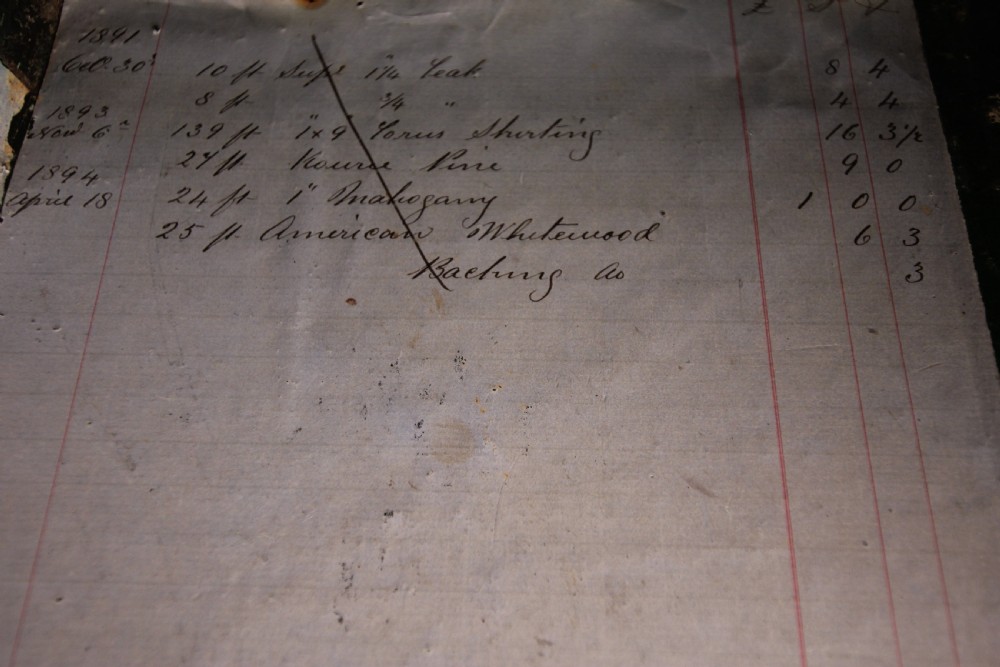 1891
Oct 30 10 ft Sup 1¼ Teak 8 4
8 ft " ¾ " 4 4
1893
Nov 6 139 ft 1x9 Torus Skirting 16 3½
27 ft Kourie Pine 9 0
1894
April 18 24 ft 1" Mahogany 1 0 0
25 ft American Whitewood 6 3
3